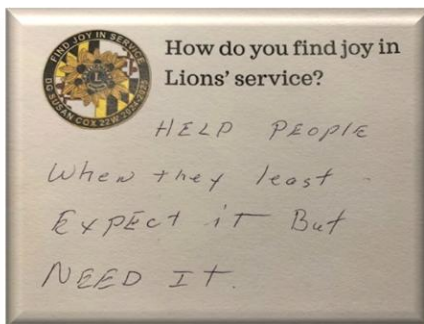 FIND JOY IN SERVICE
DG SUSAN COX 22W 2024-2025
How do you find joy in
Lions' service?
HELP PEOPlE
When they least
ExpEct it But
NEED IT.